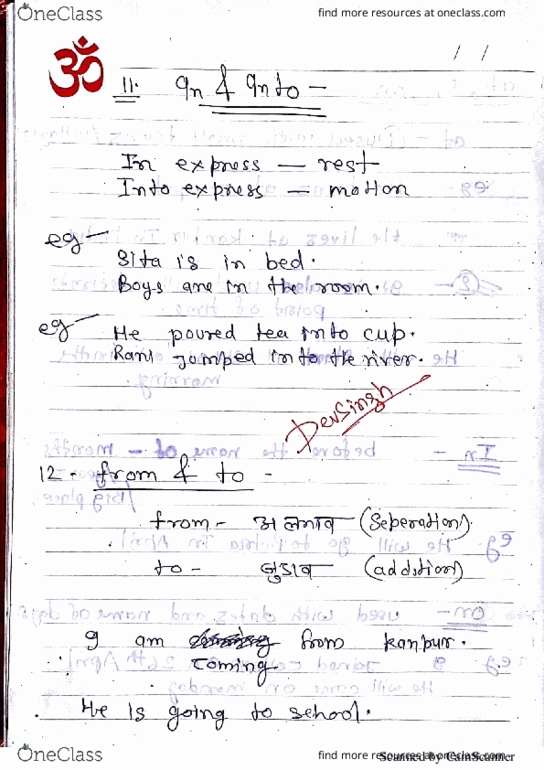 OneClass
find more resources at oneclass.com
ॐ
/ /
11. In & Into -
In express — rest
Into express — motion
eg —
Sita is in bed.
Boys are in the room.
eg —
He poured tea into cup.
Rani Jumped into the river.
DevSingh
12. from & to -
from - अलगाव (Seperation).
to - जुडाव (addition)
I am from Kanpur.
coming
He is going to school.
OneClass
find more resources at oneclass.com
Scanned by CamScanner